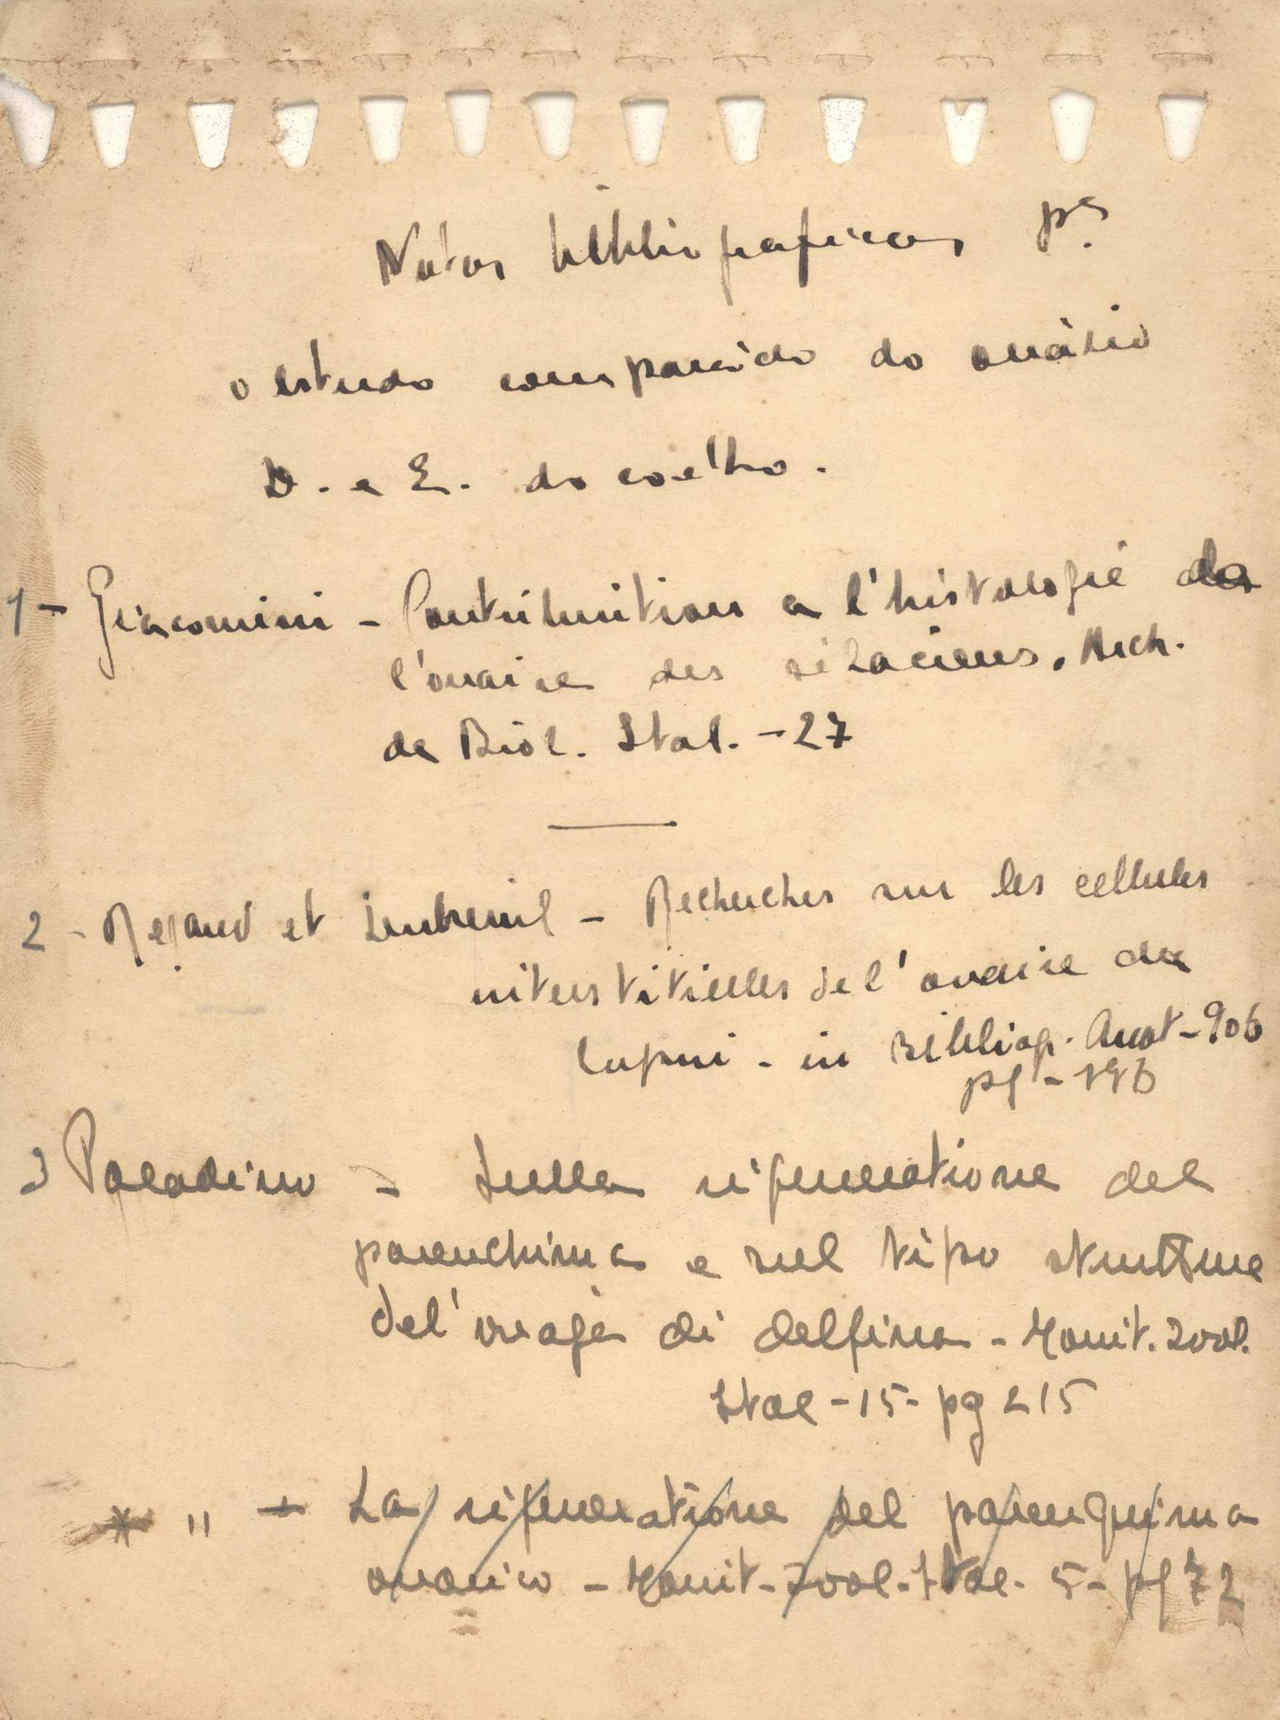 Notas bibliograficas pª
o estudo comparado do ovário
D. e E. do coelho.
1 - Giacomini - Contribuition a l'histologie de
l'ovaire des sélaciens. Arch.
de Biol. Ital. - 27
2 - Regaud et Dubreuil - Recherches sur les cellules
interstitielles de l'ovaire du
lapin - in Bibliog. Anat - 906
pg - 196
3 Paladino - Sulla rigeneratione del
parenchima e sul tipo struttura
del' di delfina - Monit. Zool.
Ital - 15 - pg 215
* " - La rigeneratione del parenquima
ovarico - Monit - Zool - Ital - 5 - pg 72